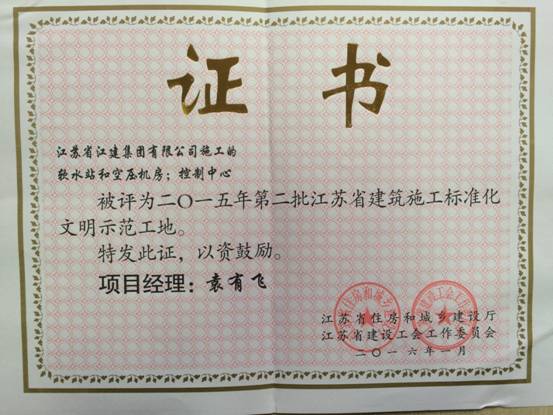 证书
江苏省江建集团有限公司施工的
软水站和空压机房；控制中心
被评为二〇一五年第二批江苏省建筑施工标准化
文明示范工地。
特发此证，以资鼓励。
项目经理：袁有飞
江苏省住房和城乡建设厅
江苏省建设工会工作委员会
二〇一六年一月